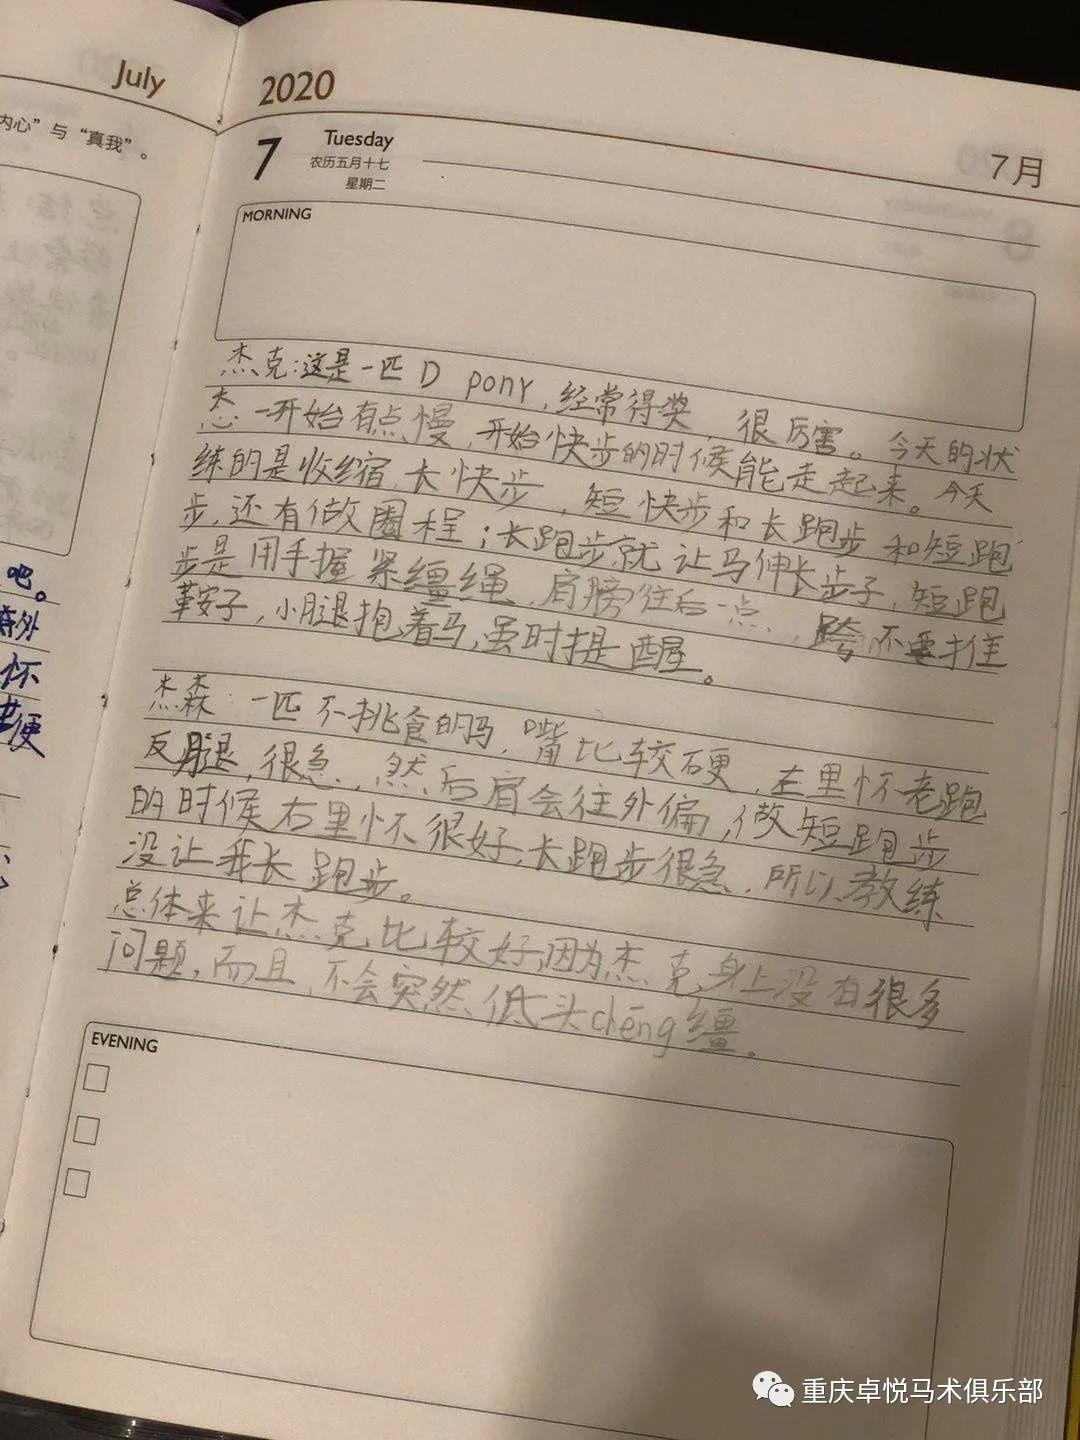 July
内心”与“真我”。
吧。
怀
便
2020
7月
7
Tuesday
农历五月十七
星期二
MORNING
杰克:这是一匹D pony,经常得奖,很厉害。今天的状
态一开始有点慢,开始快步的时候能走起来。今天
练的是收缩,长快步,短快步和长跑步和短跑
步,还有做圈程;长跑步就让马伸长步子,短跑
步是用手握紧缰绳,肩膀往后一点,跨不要推
鞍子,小腿抱着马,虽时提醒。
杰森:一匹不挑食的马,嘴比较硬,左里怀老跑
反腿,很急,然后肩会往外偏,做短跑步
的时候右里怀很好,长跑步很急,所以教练
没让我长跑步。
总体来让杰克比较好,因为杰克身上没有很多
问题,而且,不会突然低头chēng缰。
EVENING
重庆卓悦马术俱乐部